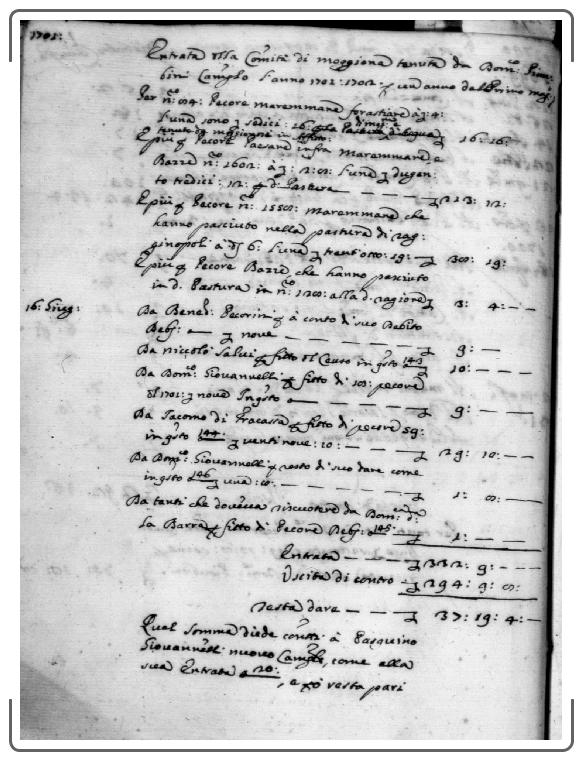 1701:
Entrata della Comità di moggiona tenuta da Dom:co Giova
bini Camarlo l'anno 1701: 1702: p un anno del Primo mag:
Per n:o 84: Pecore maremmane forastiere à 4:
l'una sono sedici: 16:
tenute da moggione in affitto: 16: 16:
E più p Pecore Paesane infra Maremmane e
Bazze n:o 1602: à 2: 8: l'una dugen-
to tredici: 12: p d:a Pastura — — — — 213: 12:
E più p Pecore n:o 1550: Maremmane che
hanno pasciuto nella pastura di rag:
ginopoli à d: 6: l'una trentotto: 19: — 38: 19:
E più p Pecore Bazze, che hanno pasciuto
in d:a Pastura in n:o alla d:a ragione 3: 4: — —
16: Giug:
Da Bened: Pecorini p à conto di suo Debito
Debs: — nove — — — — — 9: —
Da niccolò Salvi p fitto del in qsto 143 10: — —
Da Dom:co Giovannelli p fitto di 100: pecore
del 1701: nove In qsto — — — — 9: — —
Da Jacomo di Fracassa p fitto di pecore 59:
in qsto 144 ventinove: 10: — — — 29: 10: —
Da Dom:co Giovannelli p resto di suo dare come
in qsto 146 una: 8: — — — — 1: 8: —
Da tanti che doveva riscuotere da Dom:ca d:
la Barra p fitto di Pecore Debs: 145 1: — —
Entrata — — 332: 9: — —
Uscita di contro — 294: 9: 8:
resta dare — — — 37: 19: 4: —
Qual somma diede contti à Pasquino
Giovannelli nuovo Camarlo, come alla
sua Entrata 20:, e p ò resta pari